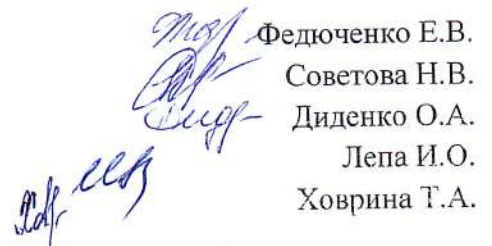 Федюченко Е.В.
Советова Н.В.
Диденко О.А.
Лепа И.О.
Ховрина Т.А.